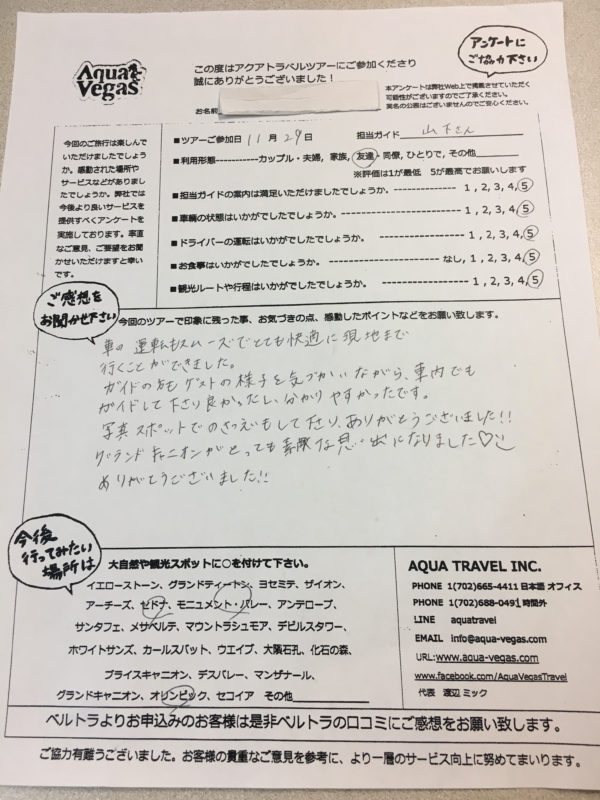 Aqua
Vegas
この度はアクアトラベルツアーにご参加くださり
誠にありがとうございました！
アンケートに
ご協力下さい
お名前
本アンケートは弊社Web上で掲載させていただく
可能性がございますのでご了承ください。
実名の公表はございませんのでご安心ください。
今回のご旅行は楽しんで
いただけましたでしょう
か。感動された場所や
サービスなどがありまし
たでしょうか。弊社では
今後より良いサービスを
提供すべくアンケートを
実施しております。率直
なご意見、ご要望をお聞
かせいただけますと幸い
です。
■ツアーご参加日 11月 29日 担当ガイド 山下さん
■利用形態------------カップル・夫婦, 家族, 友達・同僚, ひとりで, その他
※評価は1が最低 5が最高でお願いします
■担当ガイドの案内は満足いただけましたでしょうか。 1, 2, 3, 4, 5
■車輌の状態はいかがでしたでしょうか。 1, 2, 3, 4, 5
■ドライバーの運転はいかがでしたでしょうか。 1, 2, 3, 4, 5
■お食事はいかがでしたでしょうか。 なし, 1, 2, 3, 4, 5
■観光ルートや行程はいかがでしたでしょうか。 1, 2, 3, 4, 5
ご感想を
お聞かせ下さい
今回のツアーで印象に残った事、お気づきの点、感動したポイントなどをお願い致します。
車の運転もスムーズでとても快適に現地まで
行くことができました。
ガイドの方もゲストの様子を気づかいながら、車内でも
ガイドして下さり良かったし、分かりやすかったです。
写真スポットでのさつえいもして下さり、ありがとうございました!!
グランドキャニオンがとっても素敵な思い出になりました♡
ありがとうございました!!
今後
行ってみたい
場所は
大自然や観光スポットに○を付けて下さい。
イエローストーン、グランドティートン、ヨセミテ、ザイオン、
アーチーズ、セドナ、モニュメント・バレー、アンテロープ、
サンタフェ、メサベルデ、マウントラシュモア、デビルスタワー、
ホワイトサンズ、カールスバット、ウエイブ、大隕石孔、化石の森、
ブライスキャニオン、デスバレー、マンザナール、
グランドキャニオン、オリンピック、セコイア その他
AQUA TRAVEL INC.
PHONE 1(702)665-4411 日本語 オフィス
PHONE 1(702)688-0491 時間外
LINE aquatravel
EMAIL info@aqua-vegas.com
URL:www.aqua-vegas.com
www.facebook.com/AquaVegasTravel
代表 渡辺 ミック
ベルトラよりお申込みのお客様は是非ベルトラの口コミにご感想をお願い致します。
ご協力有難うございました。お客様の貴重なご意見を参考に、より一層のサービス向上に努めてまいります。